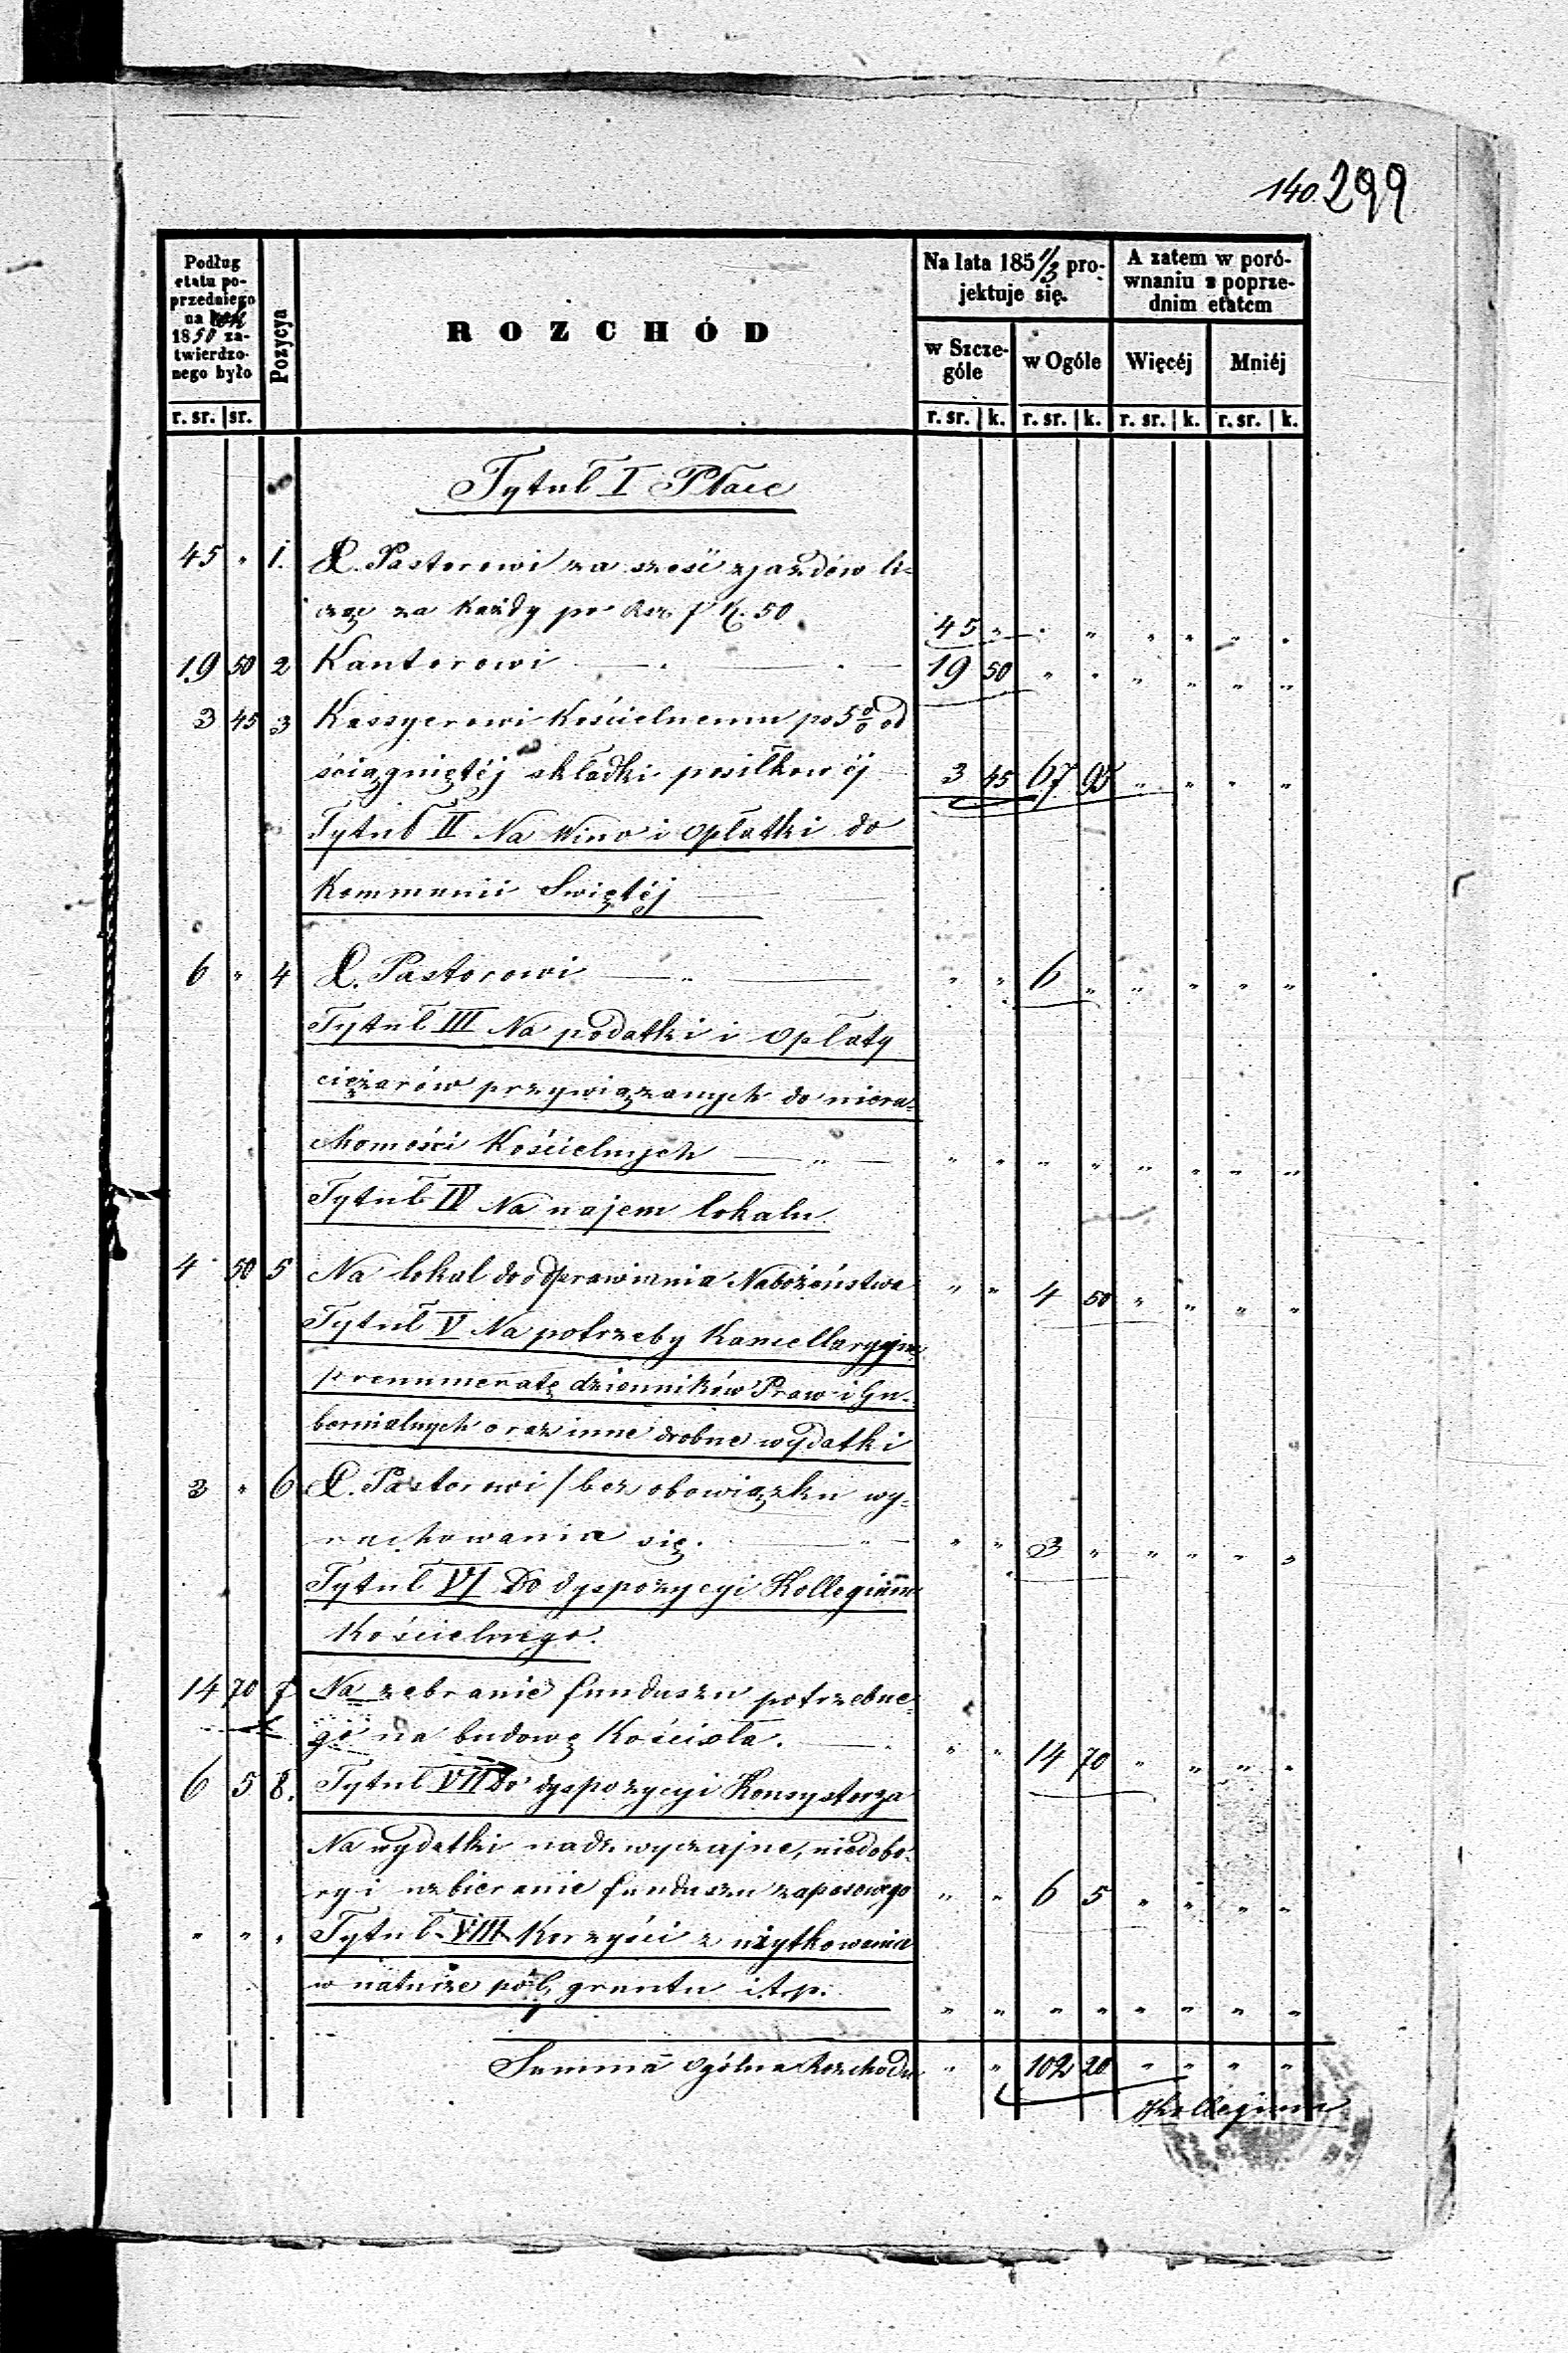 140. 299
Podług etatu poprzedniego na rok 1850 zatwierdzonego było
Pozycya
ROZCHÓD
Na lata 1851/3 projektuje się.
A zatem w porównaniu z poprzednim etatem
w Szczególe
w Ogóle
Więcéj
Mniéj
r. sr. | sr.
r. sr. | k. r. sr. | k. r. sr. | k. r. sr. | k.
Tytuł I Płace
45 „ 1. X. Pastorowi za sześć zjazdów li-
cząc za każdy po Rsr. 7 K. 50 45 „ „ „ „ „ „ „
19 50 2 Kantorowi 19 50 „ „ „ „ „ „
3 45 3 Kassyerowi Kościelnemu po 5 % od
ściągniętéj składki posiłkowéj 3 45 67 95 „ „ „ „
Tytuł II Na Wino i Opłatki do
Kommunii Swiętéj
6 „ 4 X. Pastorowi „ „ 6 „ „ „ „ „
Tytuł III Na podatki i Opłaty
ciężarów przywiązanych do nieru-
chomości Kościelnych „ „ „ „ „ „ „ „
Tytuł IV Na najem lokalu
4 50 5 Na lokal do odprawiania Nabożeństwa „ „ 4 50 „ „ „ „
Tytuł V Na potrzeby Kancellaryjne
prenumeratę dzienników Praw i Gu-
bernialnych oraz inne drobne wydatki
3 „ 6 X. Pastorowi / bez obowiązku wy-
rachowania się. „ „ 3 „ „ „ „ „
Tytuł VI Do dyspozycyi Kollegium
Kościelnego.
14 70 7 Na zebranie funduszu potrzebne-
go na budowę Kościoła. „ „ 14 70 „ „ „ „
6 5 8. Tytuł VII Do dyspozycyi Konsystorza
Na wydatki nadzwyczajne, niedobo-
ry i uzbieranie funduszu zapasowego „ „ 6 5 „ „ „ „
„ „ „ Tytuł VIII Korzyści z użytkowania
w naturze pól, gruntu i t. p. „ „ „ „ „ „ „ „
Summa Ogólna Rozchodu „ „ 102 20 „ „ „ „
Kollegium